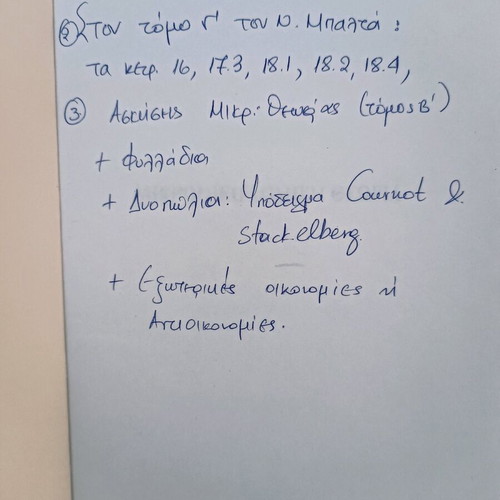 ② Στον τόμο Γ' του Ν. Μπαλτά :
τα κεφ. 16, 17.3, 18.1, 18.2, 18.4,
③ Ασκήσης Μικρ. Θεωρίας (τόμος Β')
+ Φυλλάδια
+ Δυοπώλια: Υπόδειγμα Cournot &
Stackelberg.
+ Εξωτερικές οικονομίες ή
Αντιοικονομίες.